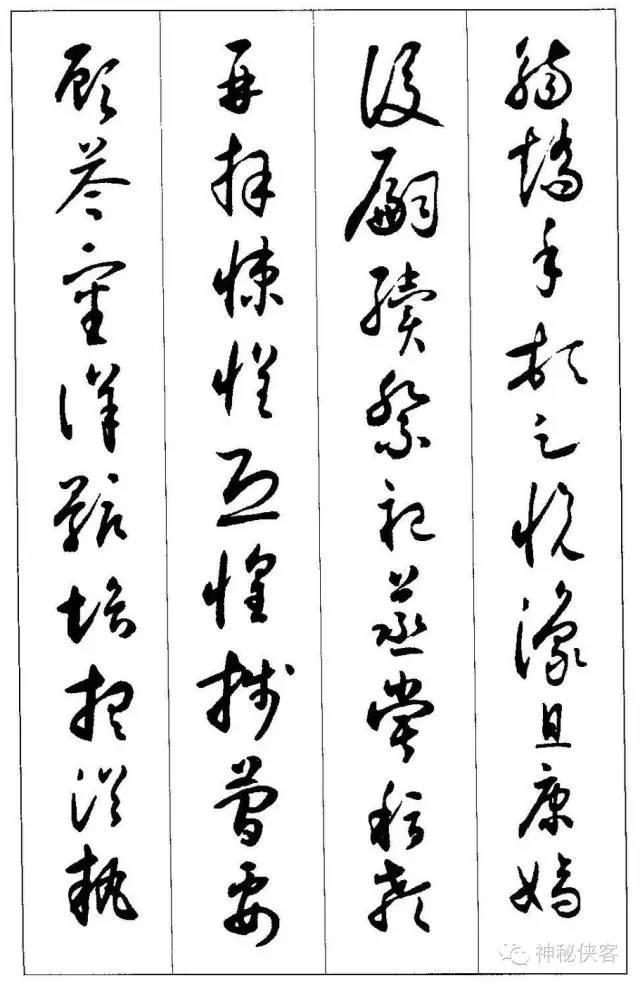 觴矯手頓足悅豫且康嫡
後嗣續祭祀蒸嘗稽顙
再拜悚懼恐惶牋簡要
顧答審詳骸垢想浴執
神秘侠客